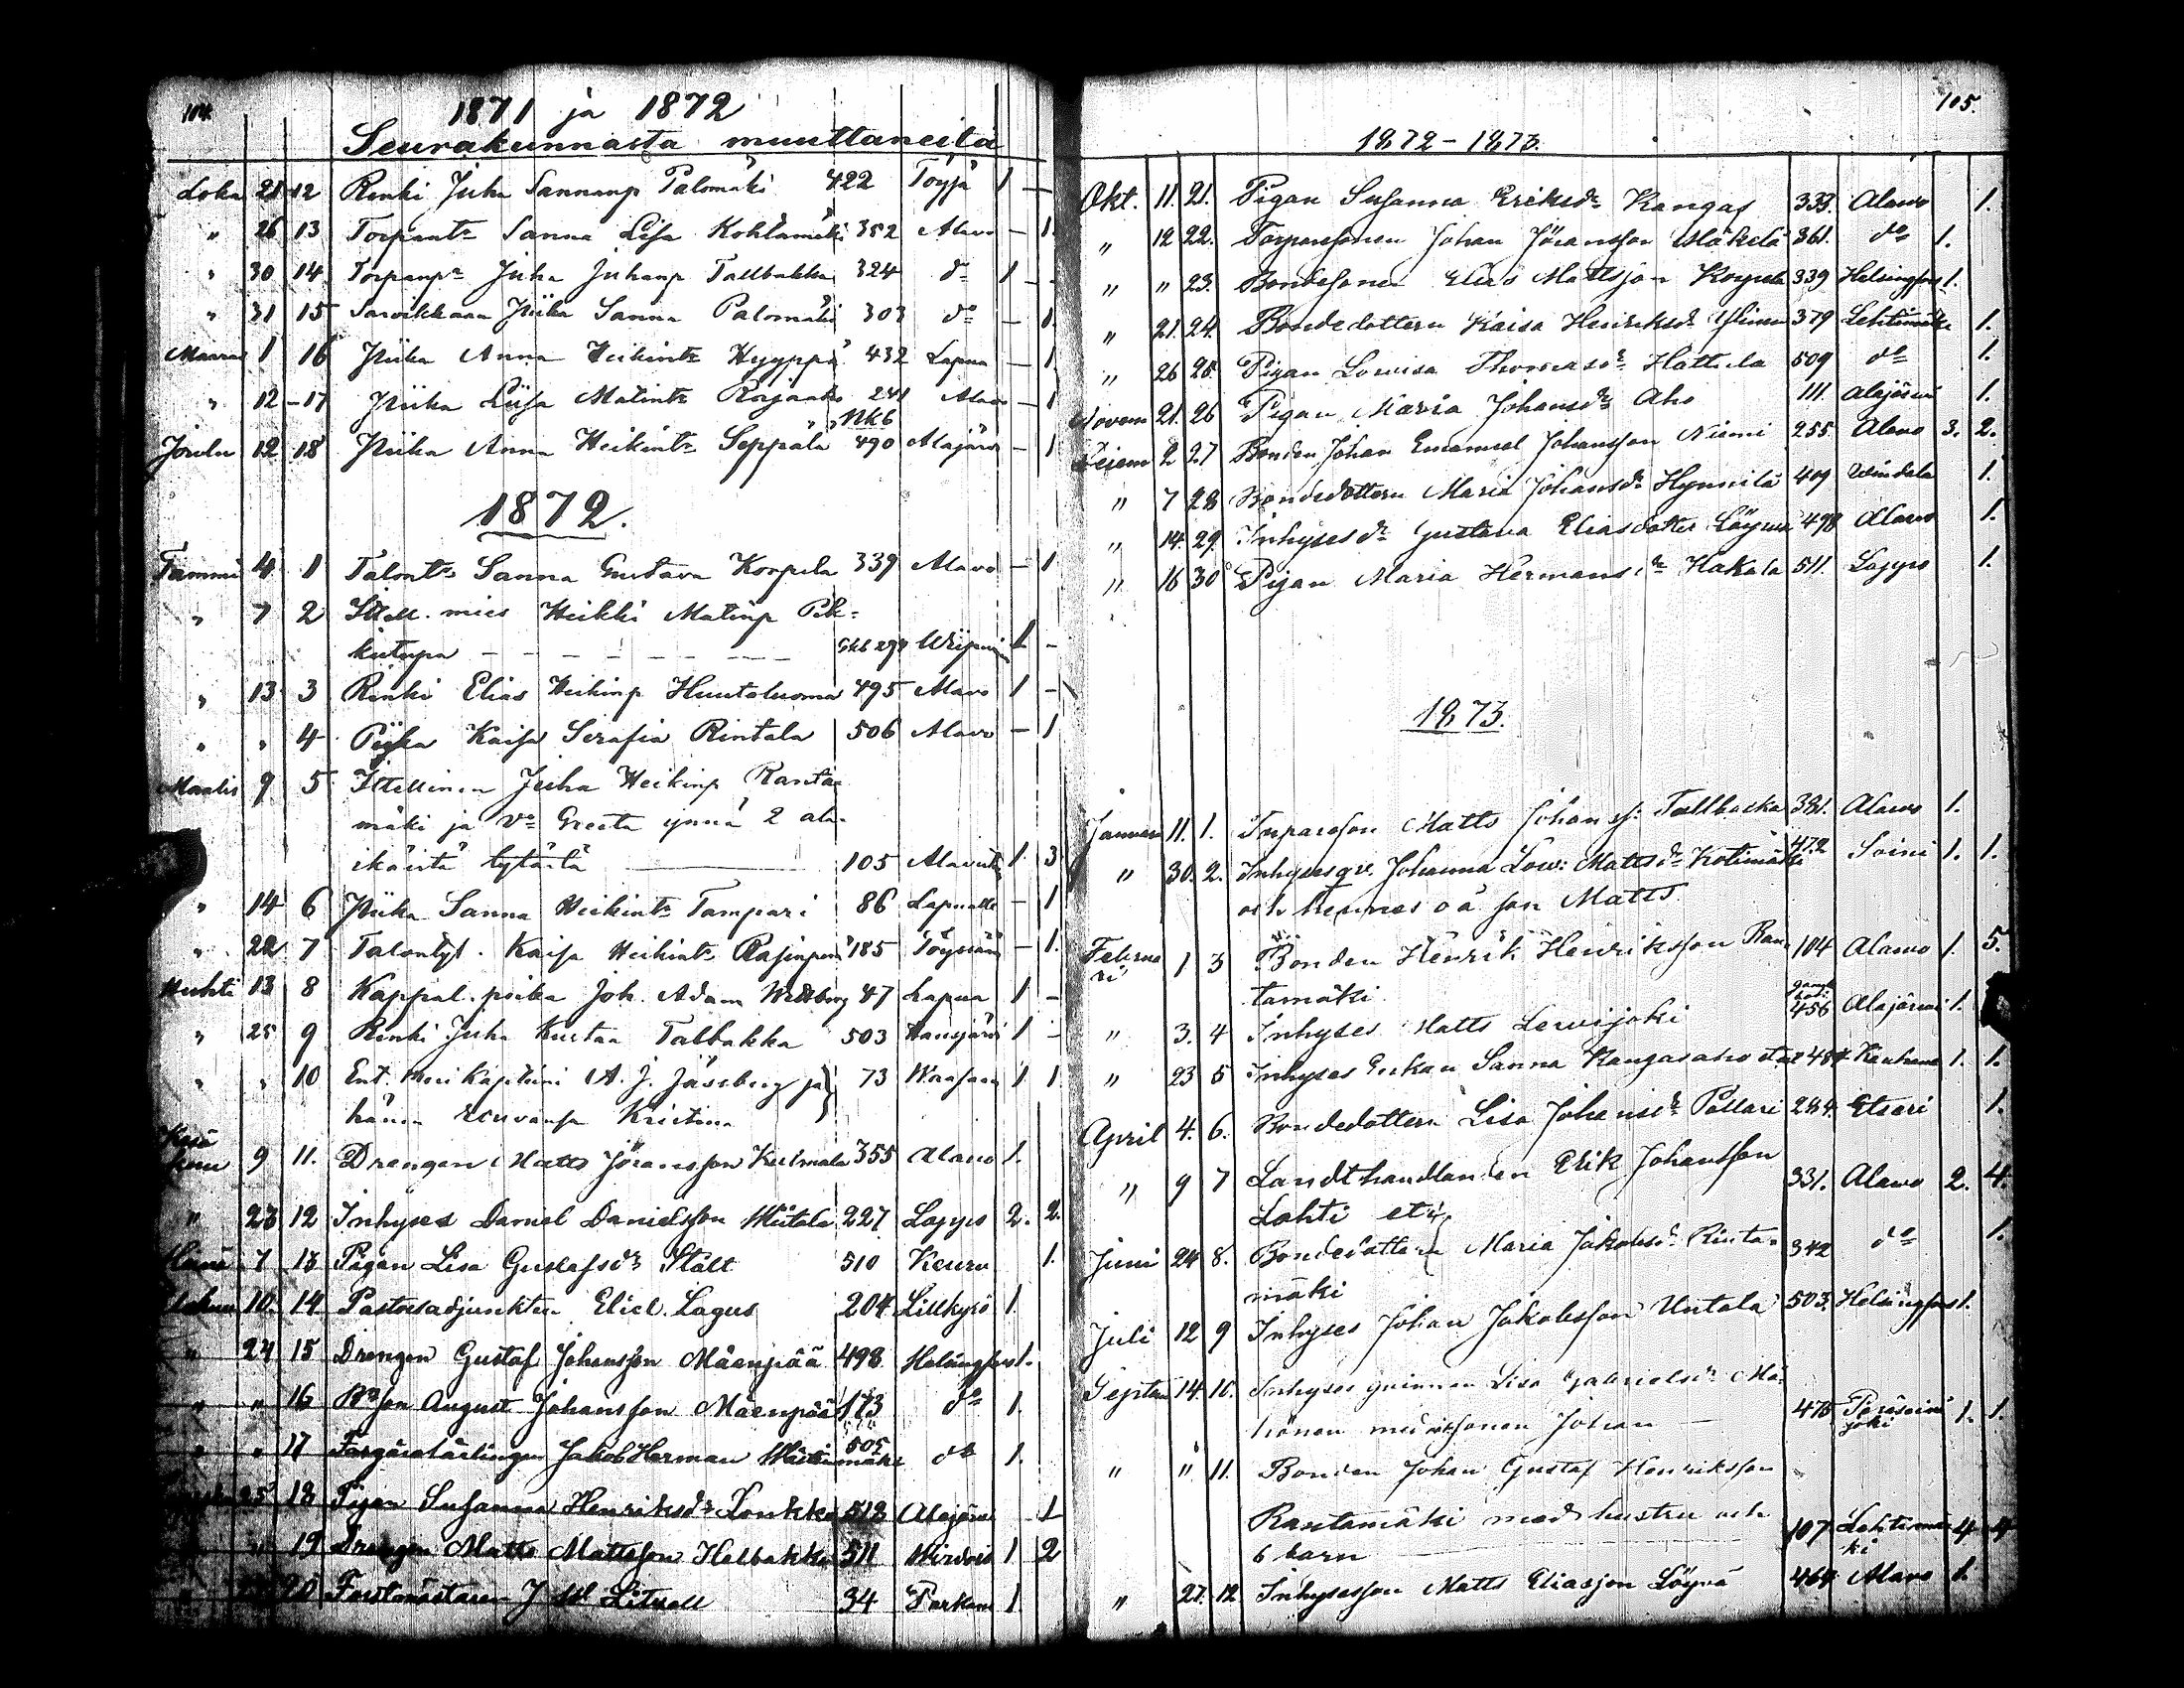 104.
1871 ja 1872
Seurakunnasta muuttaneita
Loka 21 12 Renki Juha Sannanp Palomäki 422 Töysä 1 —
" 26 13 Torpantr Sanna Lisa Kohlamäki 352 Alavo — 1.
" 30 14 Torpanpr Juha Juhanp Tallbakka 324 do 1 —
" 31 15 Piika Sanna Palomäki 303 do — 1.
Marras 1 16 Piika Anna Heikintr Hyyppä 432 Lapua — 1
" 12 - 17 Piika Liisa Matintr 241 Alavo — 1
Nkb
Joulu 12 18 Piika Anna Heikintr Seppälä 490 Alajärvi — 1
1872.
Tammi 4 1 Talontr Sanna Gustava Korpela 339 Alavo — 1
" 7 2 Itsell. mies Heikki Matinp Pik=
kutupa — — — — — 299 Wiipuriin 1 -
" 13 3 Renki Elias Heikinp Huutoluoma 495 Alavo 1 -
" " 4 Piika Kaisa Serafia Rintala 506 Alavo — 1
Maalis 9 5 Itsellinen Juha Heikinp Ranta=
mäki ja vo Greeta ynnä 2 ala-
ikäistä tytärtä —— 105 1 3
" 14 6 Piika Sanna Heikintr Tampari 86 Lapualle — 1
" 22 7 Talontyt. Kaisa Heikintr 185 Töysään — 1.
Huhti 13 8 Kappal. poika Joh. Adam 47 Lapua 1 -
" 25 9 Renki Juha Kustaa Talbakka 503 1 -
" " 10 Ent. Merikapteini A. J. Jässberg ja 73 Waasaan 1 1
hänen rouvansa Kristina
Kesä
kuu 9 11. Drengen Matts Jöransson Kulmala 355 Alavo 1.
" 23 12 Inhyses Daniel Danielsson 227 Lappo 2. 2.
Heinä 7 13 Pigan Lisa Gustafsdr Stält 510 Keuru 1.
10. 14. Pastorsadjunkten Eliel Lagus 204 Lillkyrö 1.
" 24 15 Drengen Gustaf Johansson Mäenpää 498 Helsingfors 1.
" " 16 August Johansson Mäenpää 173 do 1.
" " 17 Jakob Herman 505 do 1.
25 18 Pigan Susanna Henriksdr Lonkka 512 Alajärvi 1
" " 19 Drengen Matts Mattsson Helbakka 511 Wirdois 1 2
20 Forstmästaren J 34 1
105.
1872 - 1873.
Okt. 11. 21. Pigan Susanna Eriksdr Kangas 333. Alavo 1.
" 12 22. Torparsonen Johan Jöransson Mäkelä 361. do 1.
" " 23. Bondesonen Elias Mattsson Korpela 339 Helsingfors 1.
" 21. 24. Bondedottern Kaisa Henriksdr 379 Lehtimäki 1.
" 26 25. Pigan Lovisa Thomasdr Hattula 509 do 1.
Novem 21. 26 Pigan Maria Johansdr Aho 111. Alajärvi 1.
Decem 2 27 Bonden Johan Emanuel Johansson Niemi 255 Alavo 3. 2.
" 7 28 Bondedottern Maria Johansdr Hynnilä 409 Windala 1.
" 14. 29. Inhysesdr Gustava Eliasdotter 498 Alavo 1.
" 16 30 Pigan Maria Hermansdr Hakala 511. Lappo 1.
1873.
Januari 11. 1. Torparson Matts Johanss: Tallbacka 381. Alavo 1.
" 30. 2. Inhysesqv. Johanna Low: Mattsdr Kotimäki 472 Soini 1. 1.
och hennes oä son Matts.
Februa
ri 1 3 Bonden Henrik Henriksson Ran 104 Alavo 1. 5.
tamäki
" 3. 4 Inhyses Matts Levijoki 456 Alajärvi 1.
" 23 5 Inhyses Enkan Sanna Kangasaho 1. 1.
April 4. 6. Bondedottern Lisa Johansdr Pallari 284. Etseri 1.
" 9 7 Landthandlanden Erik Johansson 331. Alavo 2. 4.
Lahti
Juni 24 8. Bondedottern Maria Jakobsdr Rinta= 342 do 1.
mäki
Juli 12 9 Inhyses Johan Jakobsson Untala 503. Helsingfors 1.
Septem 14. 10. Inhyses qvinnan Lisa Gabrielsdr Mä-
hönen med sonen Johan — 475 Peräseinä
joki 1. 1.
" " 11. Bonden Johan Gustaf Henriksson
Rantamäki med hustru och
6 barn —— 107 Lehtimä
ki 4 4
" 27. 12 Inhysesson Matts Eliasson Löyvä 464 Alavo 1.